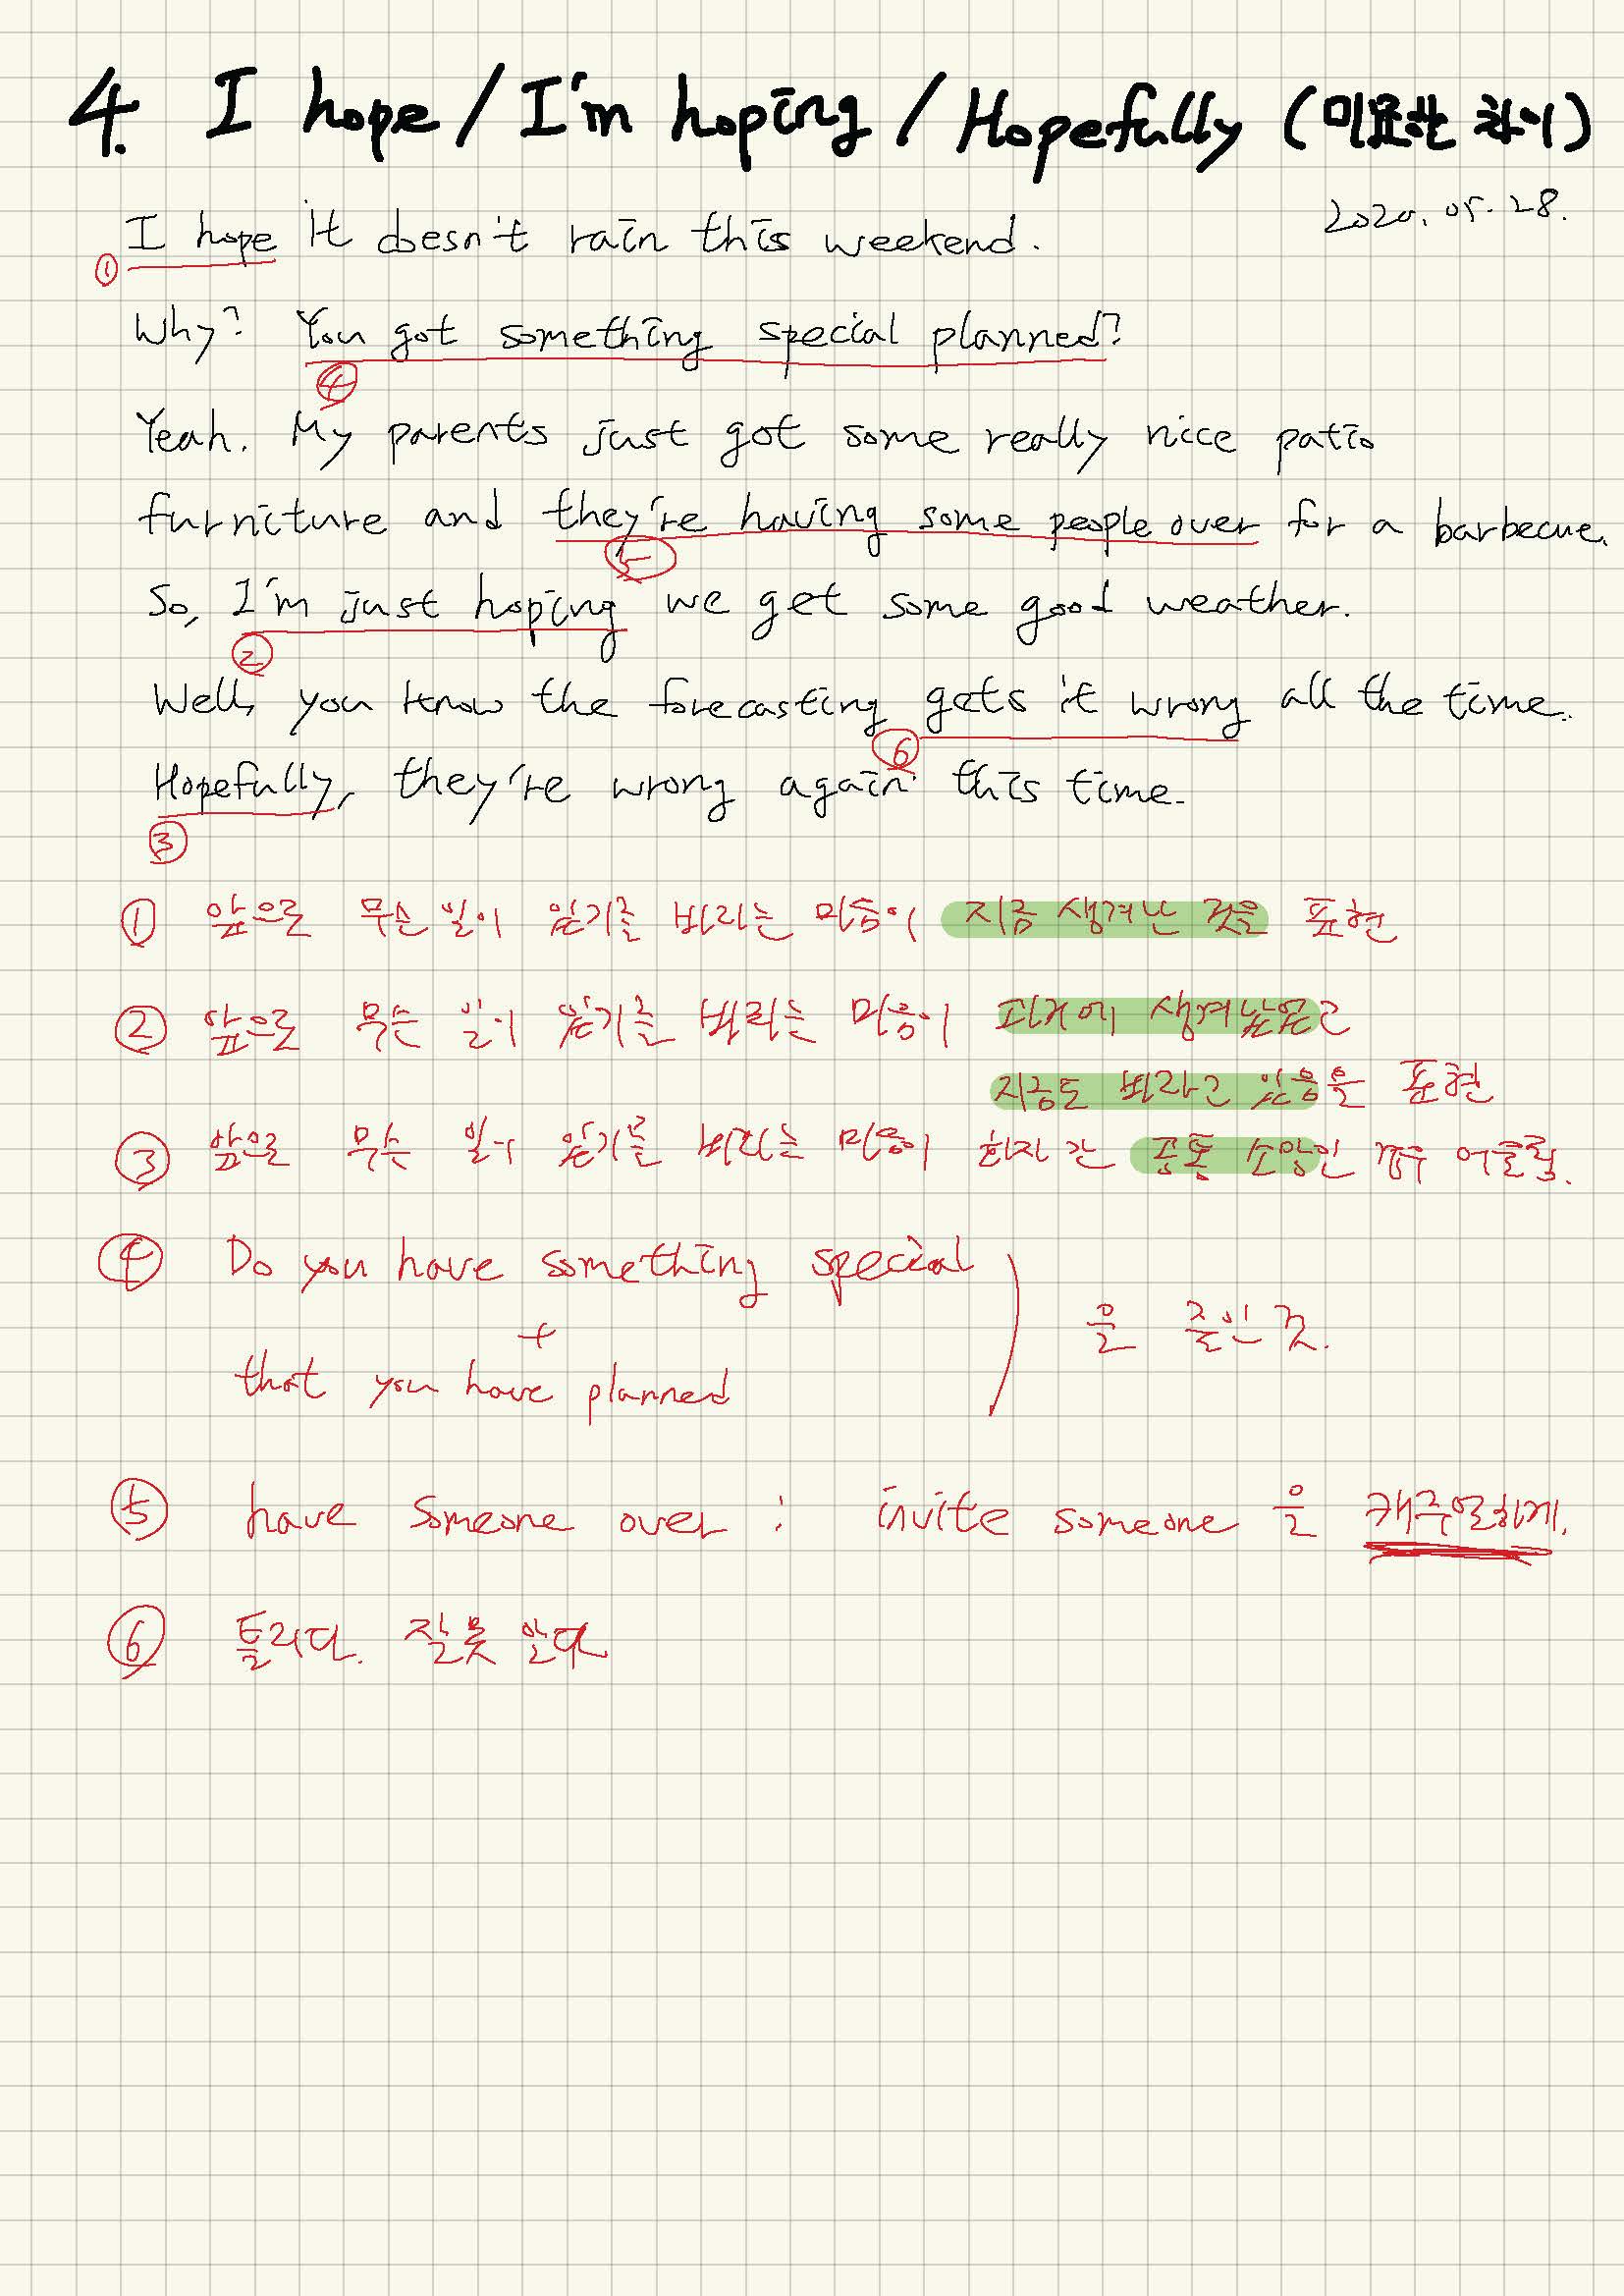 4. I hope / I'm hoping / Hopefully (미묘한 차이)
2020. 05. 28.
① I hope it doesn't rain this weekend.
Why? You got something special planned?
④
Yeah. My parents just got some really nice patio
furniture and they're having some people over for a barbecue.
⑤
So, I'm just hoping we get some good weather.
②
Well, you know the forecasting gets it wrong all the time.
⑥
Hopefully, they're wrong again this time.
③
① 앞으로 무슨 일이 있기를 바라는 마음이 지금 생겨난 것을 표현
② 앞으로 무슨 일이 있기를 바라는 마음이 과거에 생겨났었고
지금도 바라고 있음을 표현
③ 앞으로 무슨 일이 있기를 바라는 마음이 화자 간 공통 소망인 경우 어울림.
④ Do you have something special
+
that you have planned
을 줄인 것.
⑤ have someone over : invite someone 을 캐주얼하게.
⑥ 틀리다. 잘못 알다